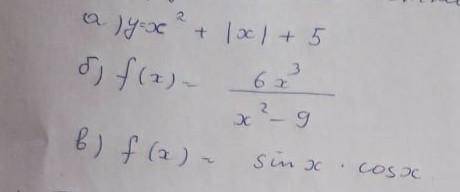 а) y=x² + |x| + 5
б) f(x) = 6x³ / x² - 9
в) f(x) = sin x · cos x